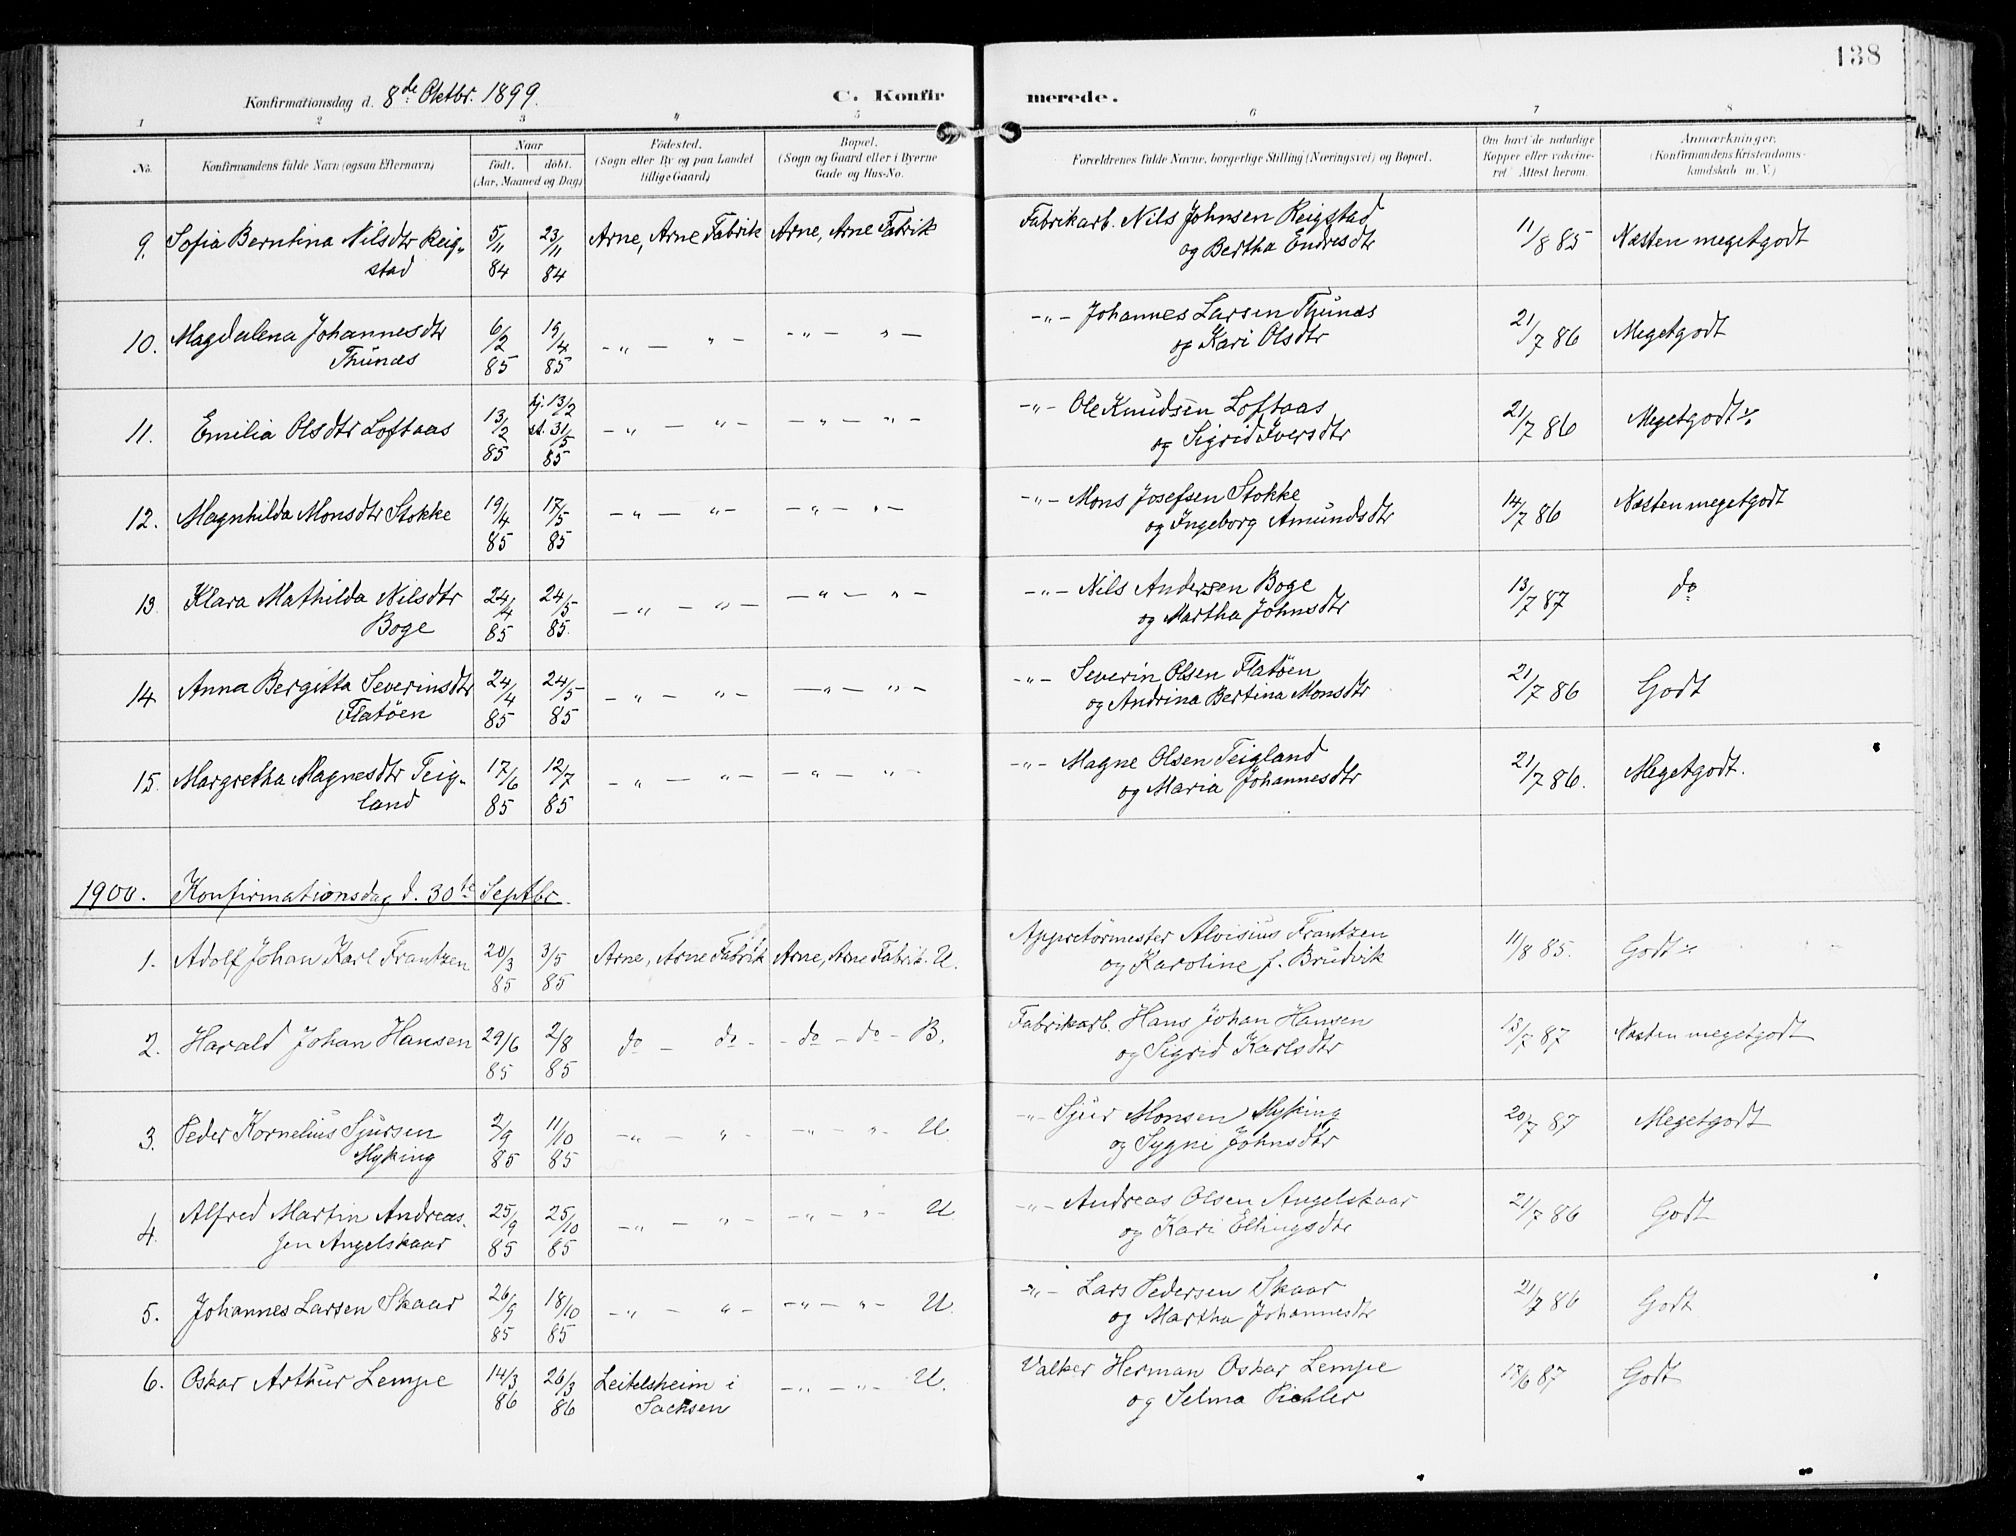 138
Konfirmationsdag d. 8de Oktbr. 1899. C. Konfir merede.
1 2 3 4 5 6 7 8
No. Konfirmandens fulde Navn (ogsaa Efternavn) Naar født. døbt. (Aar, Maaned og Dag) Fødested. (Sogn eller By og paa Landet tillige Gaard) Bopæl. (Sogn og Gaard eller i Byerne Gade og Hus-No. Forældrenes fulde Navne, borgerlige Stilling (Næringsvei) og Bopæl. Om havt de naturlige Kopper eller vakcineret? Attest herom. Anmærkninger. (Konfirmandens Kristendomskundskab m. V.)
9. Sofia Berntina Nilsdtr Reig- 5/11 23/11 Arne, Arne Fabrik Arne, Arne Fabrik Fabrikarb. Nils Johnsen Reigstad 11/8 85 Næsten megetgodt
stad 84 84 og Bertha Endresdtr
10. Magdalena Johannesdtr 6/2 19/4 -"- "- -"- "- -"- Johannes Larsen Thunæs 21/7 86 Megetgodt
Thunæs 85 85 og Kari Olsdtr
11. Emilia Olsdtr Loftaas 13/2 85 hj. 13/2 st. 31/5 85 -"- "- -"- "- -"- Ole Knudsen Loftaas 21/7 86 Megetgodt ÷
og Sigrid Iversdtr
12. Magnhilda Monsdtr Stokke 19/4 17/5 -"- "- -"- "- -"- Mons Josefsen Stokke 14/7 86 Næsten megetgodt
85 85 og Ingeborg Amundsdtr
13. Klara Mathilda Nilsdtr 24/4 24/5 -"- "- -"- "- -"- Nils Andersen Boge 13/7 87 do
Boge 85 85. og Martha Johnsdtr
14. Anna Bergitta Severinsdtr 24/4 24/5 -"- "- -"- "- -"- Severin Olsen Flatöen 21/7 86 Godt
Flatöen 85 85 og Andrina Bertina Monsdtr
15. Margretha Magnesdtr Teig- 17/6 12/7 -"- "- -"- "- -"- Magne Olsen Teigland 21/7 86. Megetgodt.
land 85 85 og Maria Johannesdtr
1900. Konfirmationsdag d. 30te Septbr.
1. Adolf Johan Karl Frantzen 20/3 3/5 Arne, Arne Fabrik Arne, Arne Fabrik. U. Appretörmester Aloisius Frantzen 11/8 85. Godt ÷
85 85 og Karoline f. Brudvik
2. Harald Johan Hansen 29/6 2/8 do - do - - do - do - B. Fabrikarb. Hans Johan Hansen 13/7 87 Næsten megetgodt
85 85 og Sigrid Karlsdtr
3. Peder Kornelius Sjursen 2/9 11/10 -"- "- -"- "- U. -"- Sjur Monsen Myking 20/7 87 Megetgodt
Myking 85 85 og Sygni Johnsdtr
4. Alfred Martin Andreas- 25/9 25/10 -"- "- -"- "- U. -"- Andreas Olsen Angelskaar 21/7 86 Godt
sen Angelskaar 85 85 og Kari Ellingsdtr
5. Johannes Larsen Skaar 26/9 18/10 -"- "- -"- "- U. -"- Lars Pedersen Skaar 21/7 86 Godt
85 85 og Martha Johannesdtr
6. Oskar Arthur Lempe 14/3 26/3 Leitelsheim i -"- "- U. Valker Herman Oskar Lempe 17/6 87 Godt
86 86 Sachsen og Selma Pichler